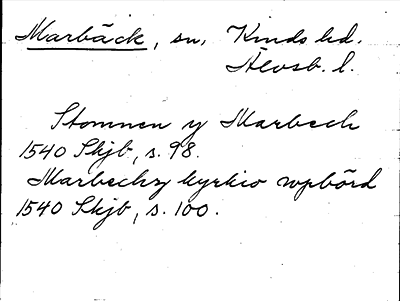 Marbäck, sn, Kinds hd.
Älvsb. l.
Stomnen y Marbeck
1540 Skjb, s. 98.
Marbecks kyrkio wpbörd
1540 Skjb, s. 100.